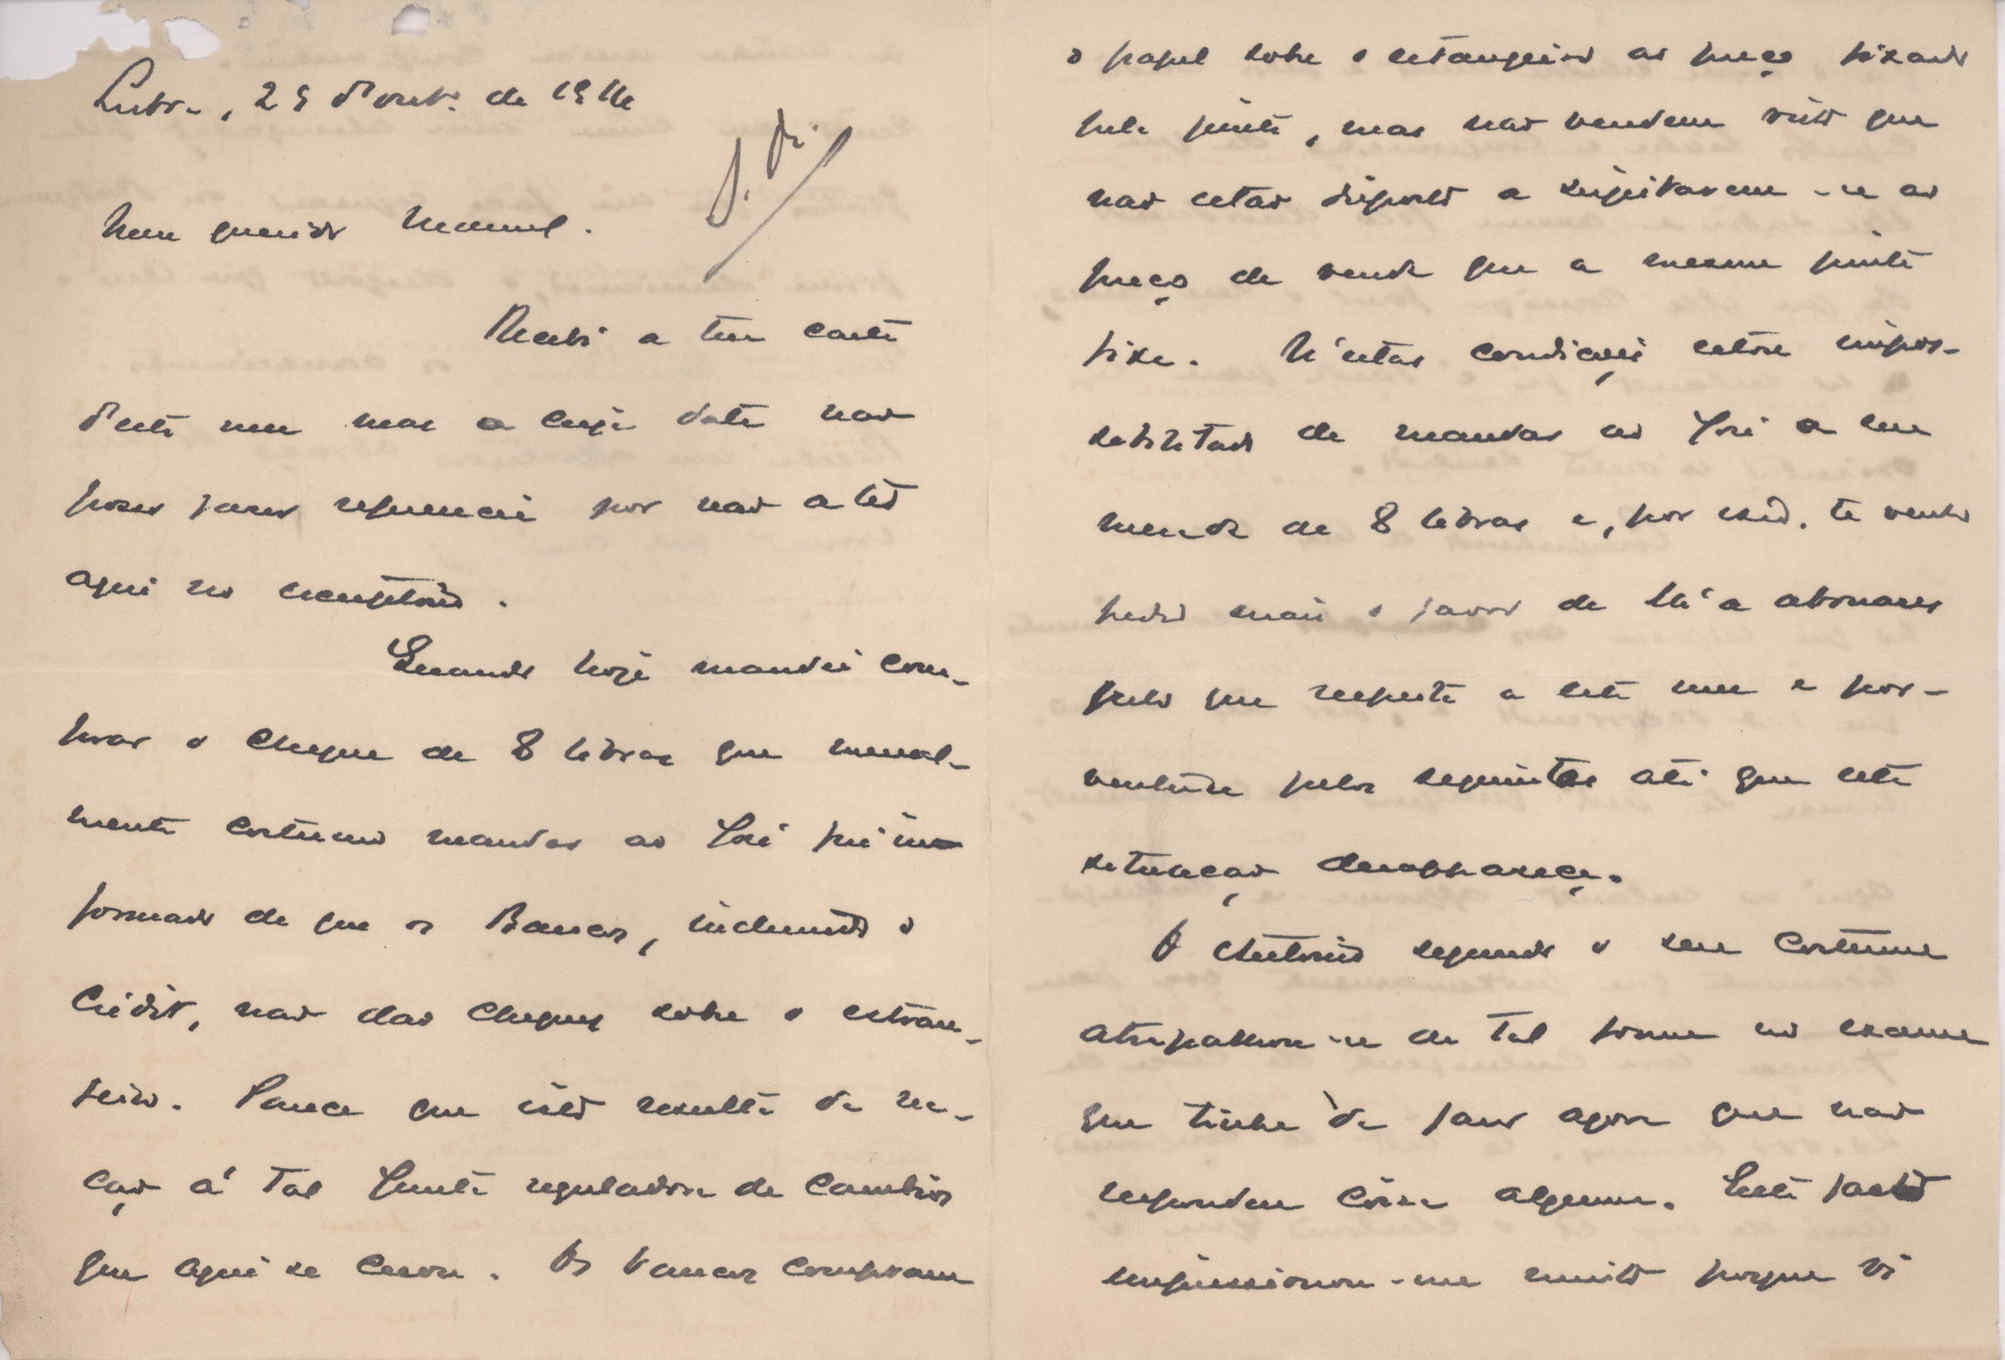 Lisboa, 29 d'Out. de 1914
Meu querido Manuel.
Recebi a tua carta
d'este mez mas a cuja data não
posso fazer referencia por não a ter
aqui no escriptorio.
Quando hoje mandei com-
prar o cheque de 8 libras que mensal-
mente costumo mandar ao José fui in-
formado de que os Bancos, incluindo o
Crédito, não dão cheques sobre o estran-
jeiro. Parece que isto resulta da re-
cção á tal Junta reguladora de Cambios
que aqui se creou. Os bancos compram
o papel sobre o estrangeiro ao preço fixado
pela junta, mas não vendem visto que
não estão dispostos a sujeitarem-se ao
preço de venda que a mesma junta
fixa. N'estas condições estou impos-
sibilitado de mandar ao José a sua
mezada de 8 libras e, por isso, te venho
pedir mais o favor de lh'a abonares
pelo que respeita a este mez e por-
ventura pelos seguintes até que esta
situação desappareça.
O Antonio segundo o seu costume
atrapalhou-se de tal forma no exame
que tinha de fazer agora que não
respondeu coisa alguma. Este facto
impressionou-me muito porque vi